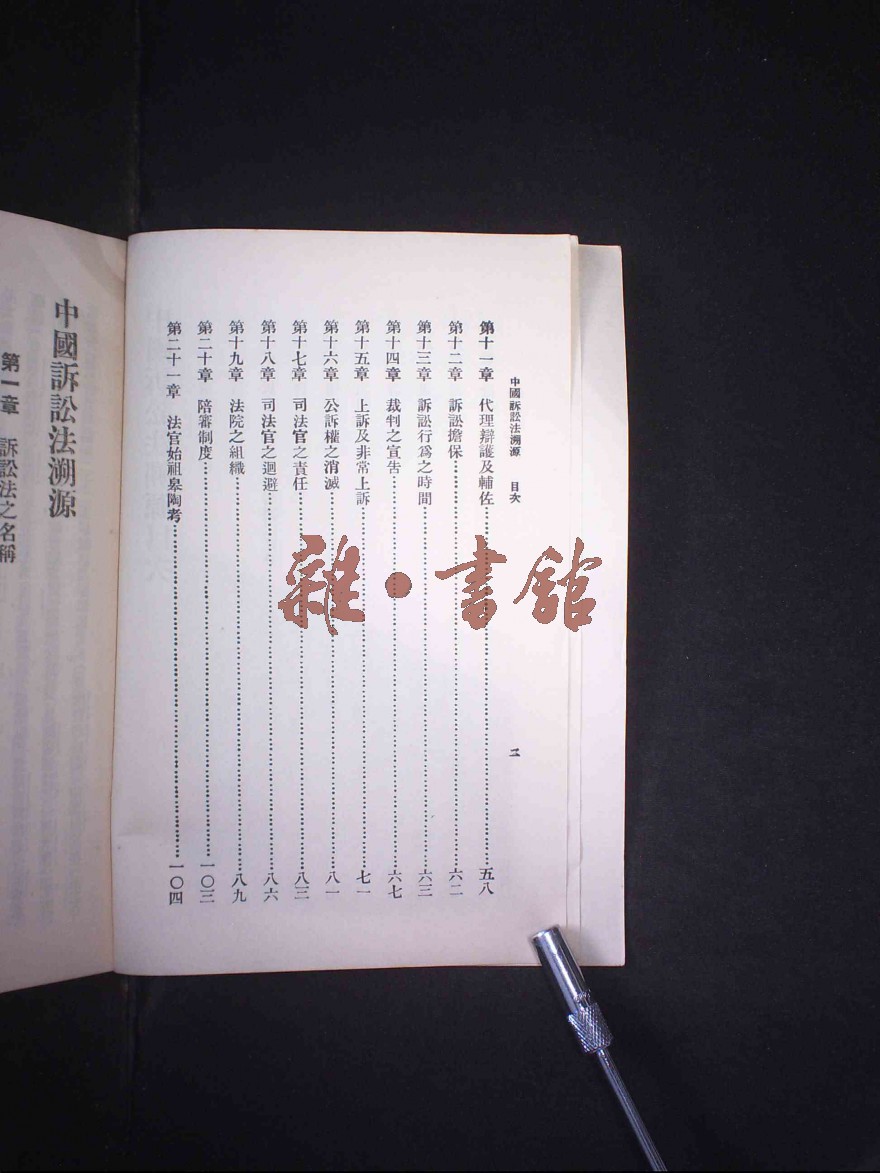 中國訴訟法溯源 目次 二
第十一章 代理辯護及輔佐 五八
第十二章 訴訟擔保 六二
第十三章 訴訟行爲之時間 六三
第十四章 裁判之宣告 六七
第十五章 上訴及非常上訴 七一
第十六章 公訴權之消滅 八一
第十七章 司法官之責任 八三
第十八章 司法官之迴避 八六
第十九章 法院之組織 八九
第二十章 陪審制度 一〇三
第二十一章 法官始祖皋陶考 一〇四
中國訴訟法溯源
第一章 訴訟法之名稱
雜·書館